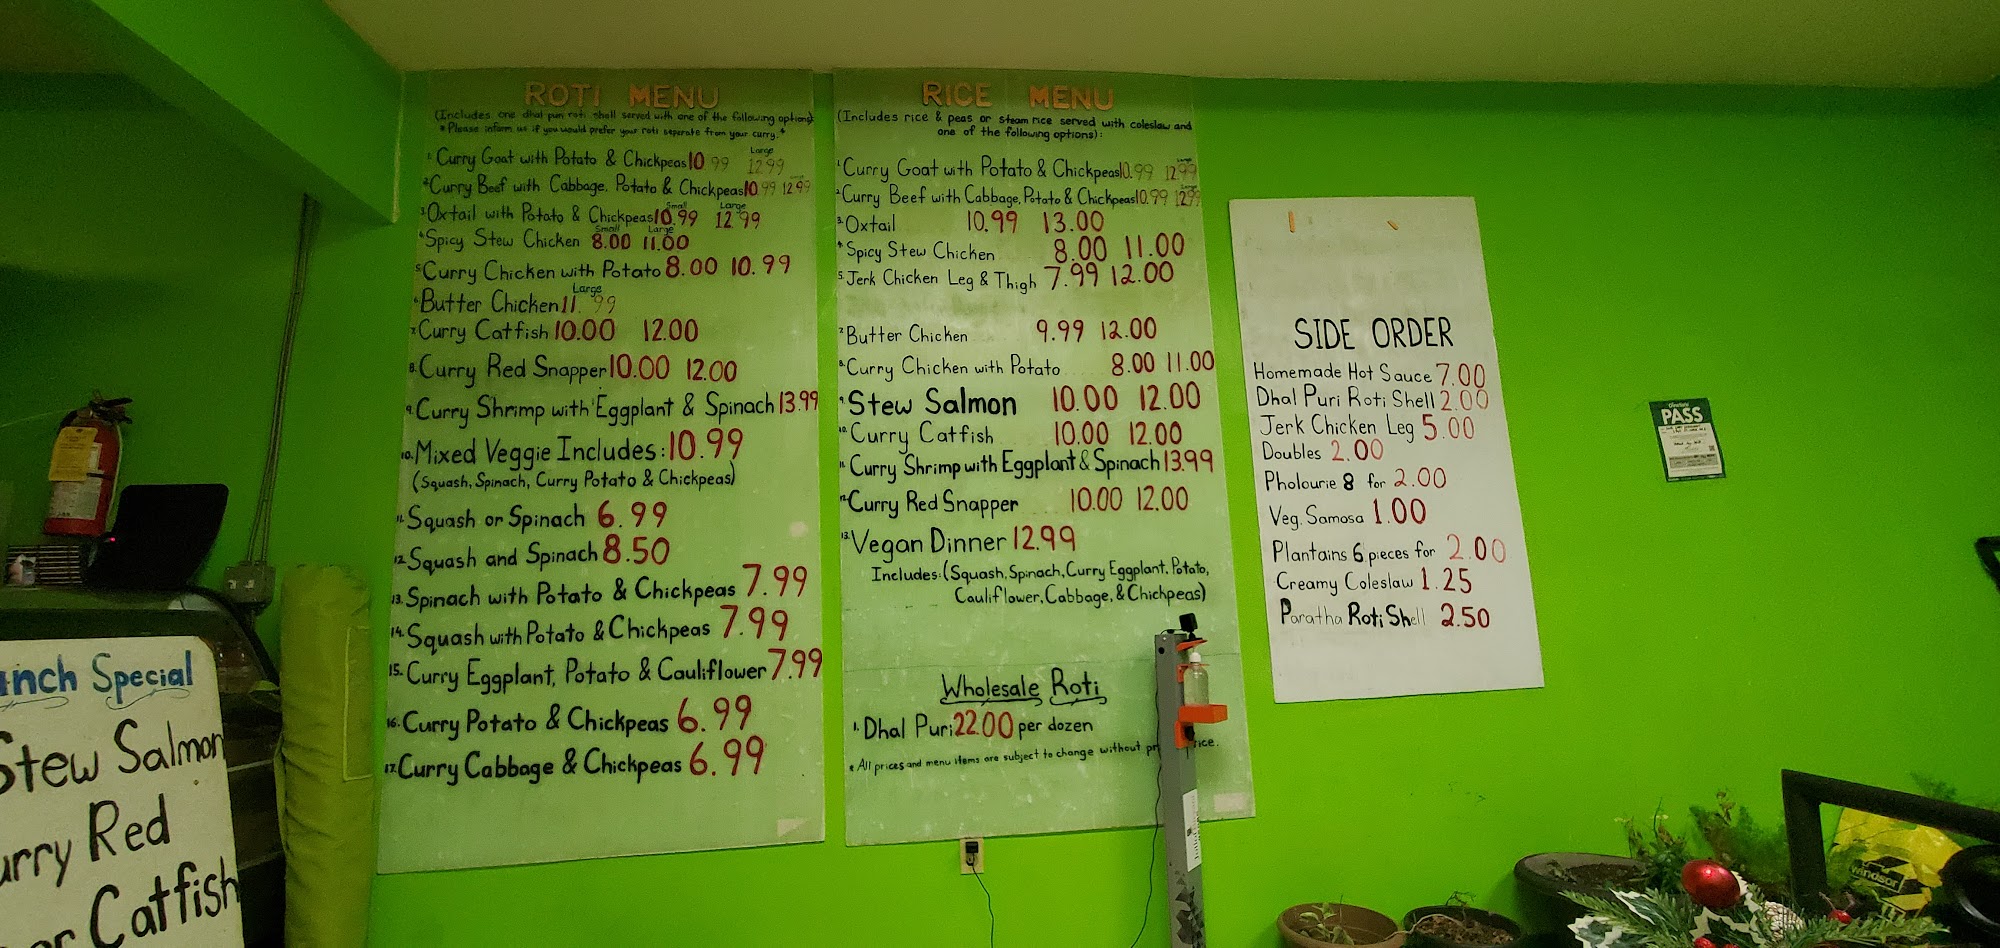 ROTI MENU
(Includes one dhal puri roti shell served with one of the following options)
*Please inform us if you would prefer your roti seperate from your curry.*
1. Curry Goat with Potato & Chickpeas 10.99 Large 12.99
2. Curry Beef with Cabbage, Potato & Chickpeas 10.99 12.99
3. Oxtail with Potato & Chickpeas Small 10.99 Large 12.99
4. Spicy Stew Chicken Small 8.00 Large 11.00
5. Curry Chicken with Potato 8.00 10.99
6. Butter Chicken Large 11.99
7. Curry Catfish 10.00 12.00
8. Curry Red Snapper 10.00 12.00
9. Curry Shrimp with Eggplant & Spinach 13.99
10. Mixed Veggie Includes: 10.99
(Squash, Spinach, Curry Potato & Chickpeas)
11. Squash or Spinach 6.99
12. Squash and Spinach 8.50
13. Spinach with Potato & Chickpeas 7.99
14. Squash with Potato & Chickpeas 7.99
15. Curry Eggplant, Potato & Cauliflower 7.99
16. Curry Potato & Chickpeas 6.99
17. Curry Cabbage & Chickpeas 6.99
RICE MENU
(Includes rice & peas or steam rice served with coleslaw and
one of the following options):
1. Curry Goat with Potato & Chickpeas 10.99 Large 12.99
2. Curry Beef with Cabbage, Potato & Chickpeas 10.99 Large 12.99
3. Oxtail 10.99 13.00
4. Spicy Stew Chicken 8.00 11.00
5. Jerk Chicken Leg & Thigh 7.99 12.00
7. Butter Chicken 9.99 12.00
8. Curry Chicken with Potato 8.00 11.00
9. Stew Salmon 10.00 12.00
10. Curry Catfish 10.00 12.00
11. Curry Shrimp with Eggplant & Spinach 13.99
12. Curry Red Snapper 10.00 12.00
13. Vegan Dinner 12.99
Includes: (Squash, Spinach, Curry Eggplant, Potato,
Cauliflower, Cabbage, & Chickpeas)
Wholesale Roti
1. Dhal Puri 22.00 per dozen
* All prices and menu items are subject to change without
SIDE ORDER
Homemade Hot Sauce 7.00
Dhal Puri Roti Shell 2.00
Jerk Chicken Leg 5.00
Doubles 2.00
Pholourie 8 for 2.00
Veg. Samosa 1.00
Plantains 6 pieces for 2.00
Creamy Coleslaw 1.25
Paratha Roti Shell 2.50
PASS
Special
Stew Salmon
Red
Catfish
Windsor